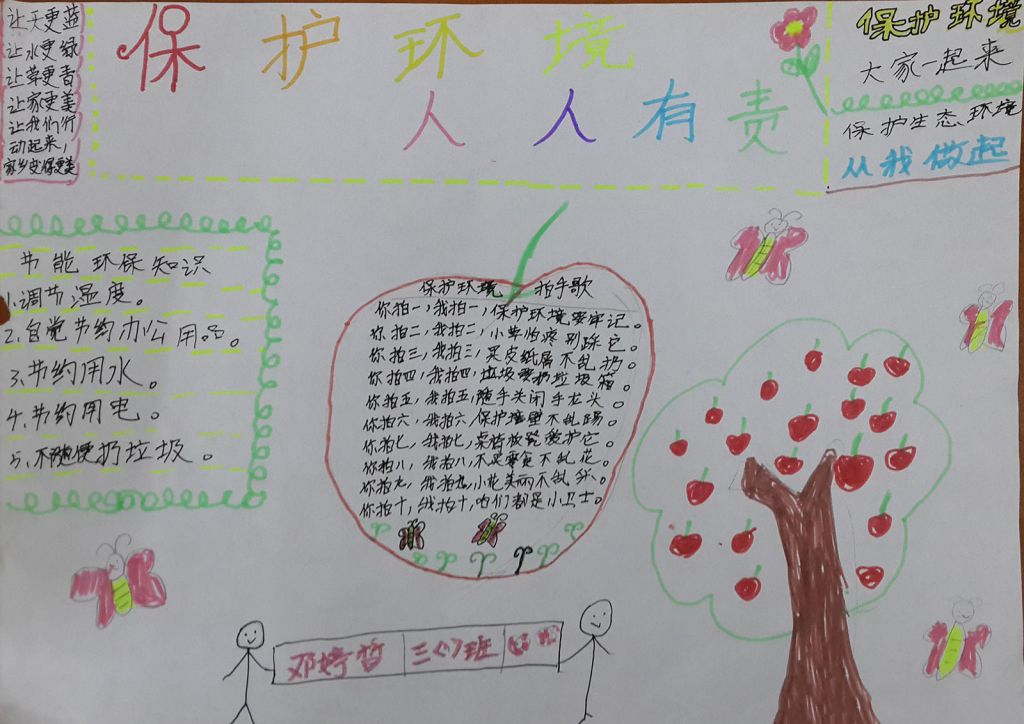 保护环境
人人有责
让天更蓝
让水更绿
让草更香
让家更美
让我们行
动起来，
家乡变得更美
保护环境
大家一起来
保护生态环境
从我做起
节能环保知识
1.调节湿度。
2.自觉节约办公用品。
3.节约用水。
4.节约用电。
5.不随便扔垃圾。
保护环境 拍手歌
你拍一，我拍一，保护环境要牢记。
你拍二，我拍二，小草怕疼别踩它。
你拍三，我拍三，果皮纸屑不乱扔。
你拍四，我拍四，垃圾要扔垃圾箱。
你拍五，我拍五，随手关闭手龙头。
你拍六，我拍六，保护墙壁不乱踢。
你拍七，我拍七，桌椅板凳爱护它。
你拍八，我拍八，不买零食不乱花。
你拍九，我拍九，小花美丽不乱
你拍十，我拍十，咱们都是小卫士。
邓婷哲 三（）班